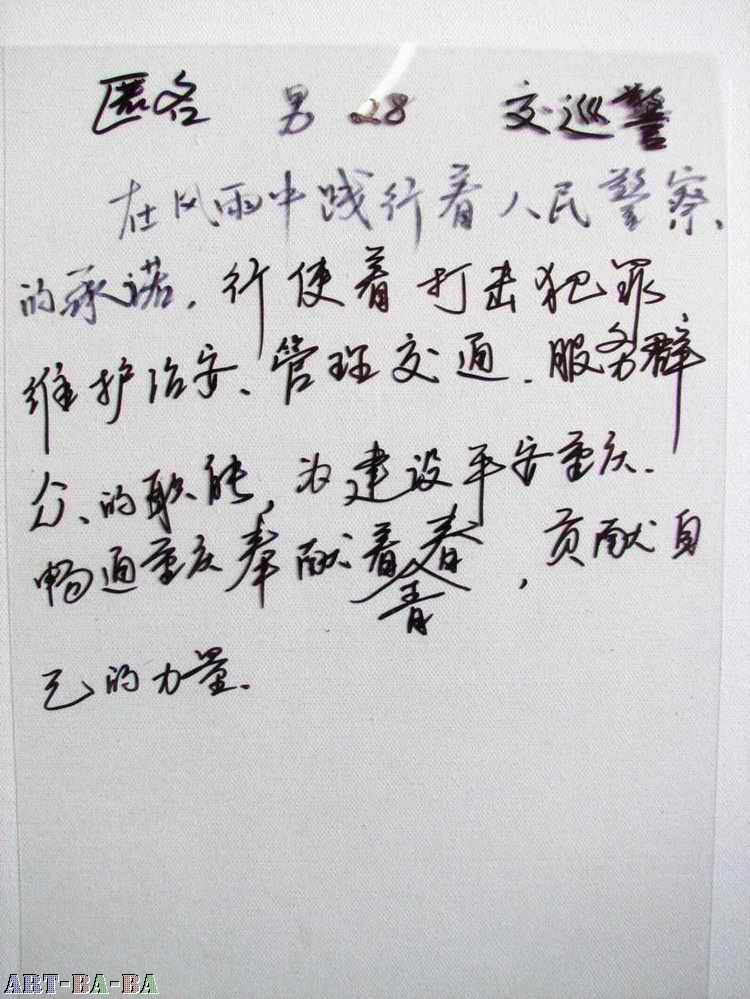 匿名 男 28 交巡警
在风雨中践行着人民警察、
的承诺,行使着打击犯罪
维护治安、管理交通、服务群
众、的职能,为建设平安重庆、
畅通重庆奉献着青春,贡献自
己的力量.
ART-BA-BA